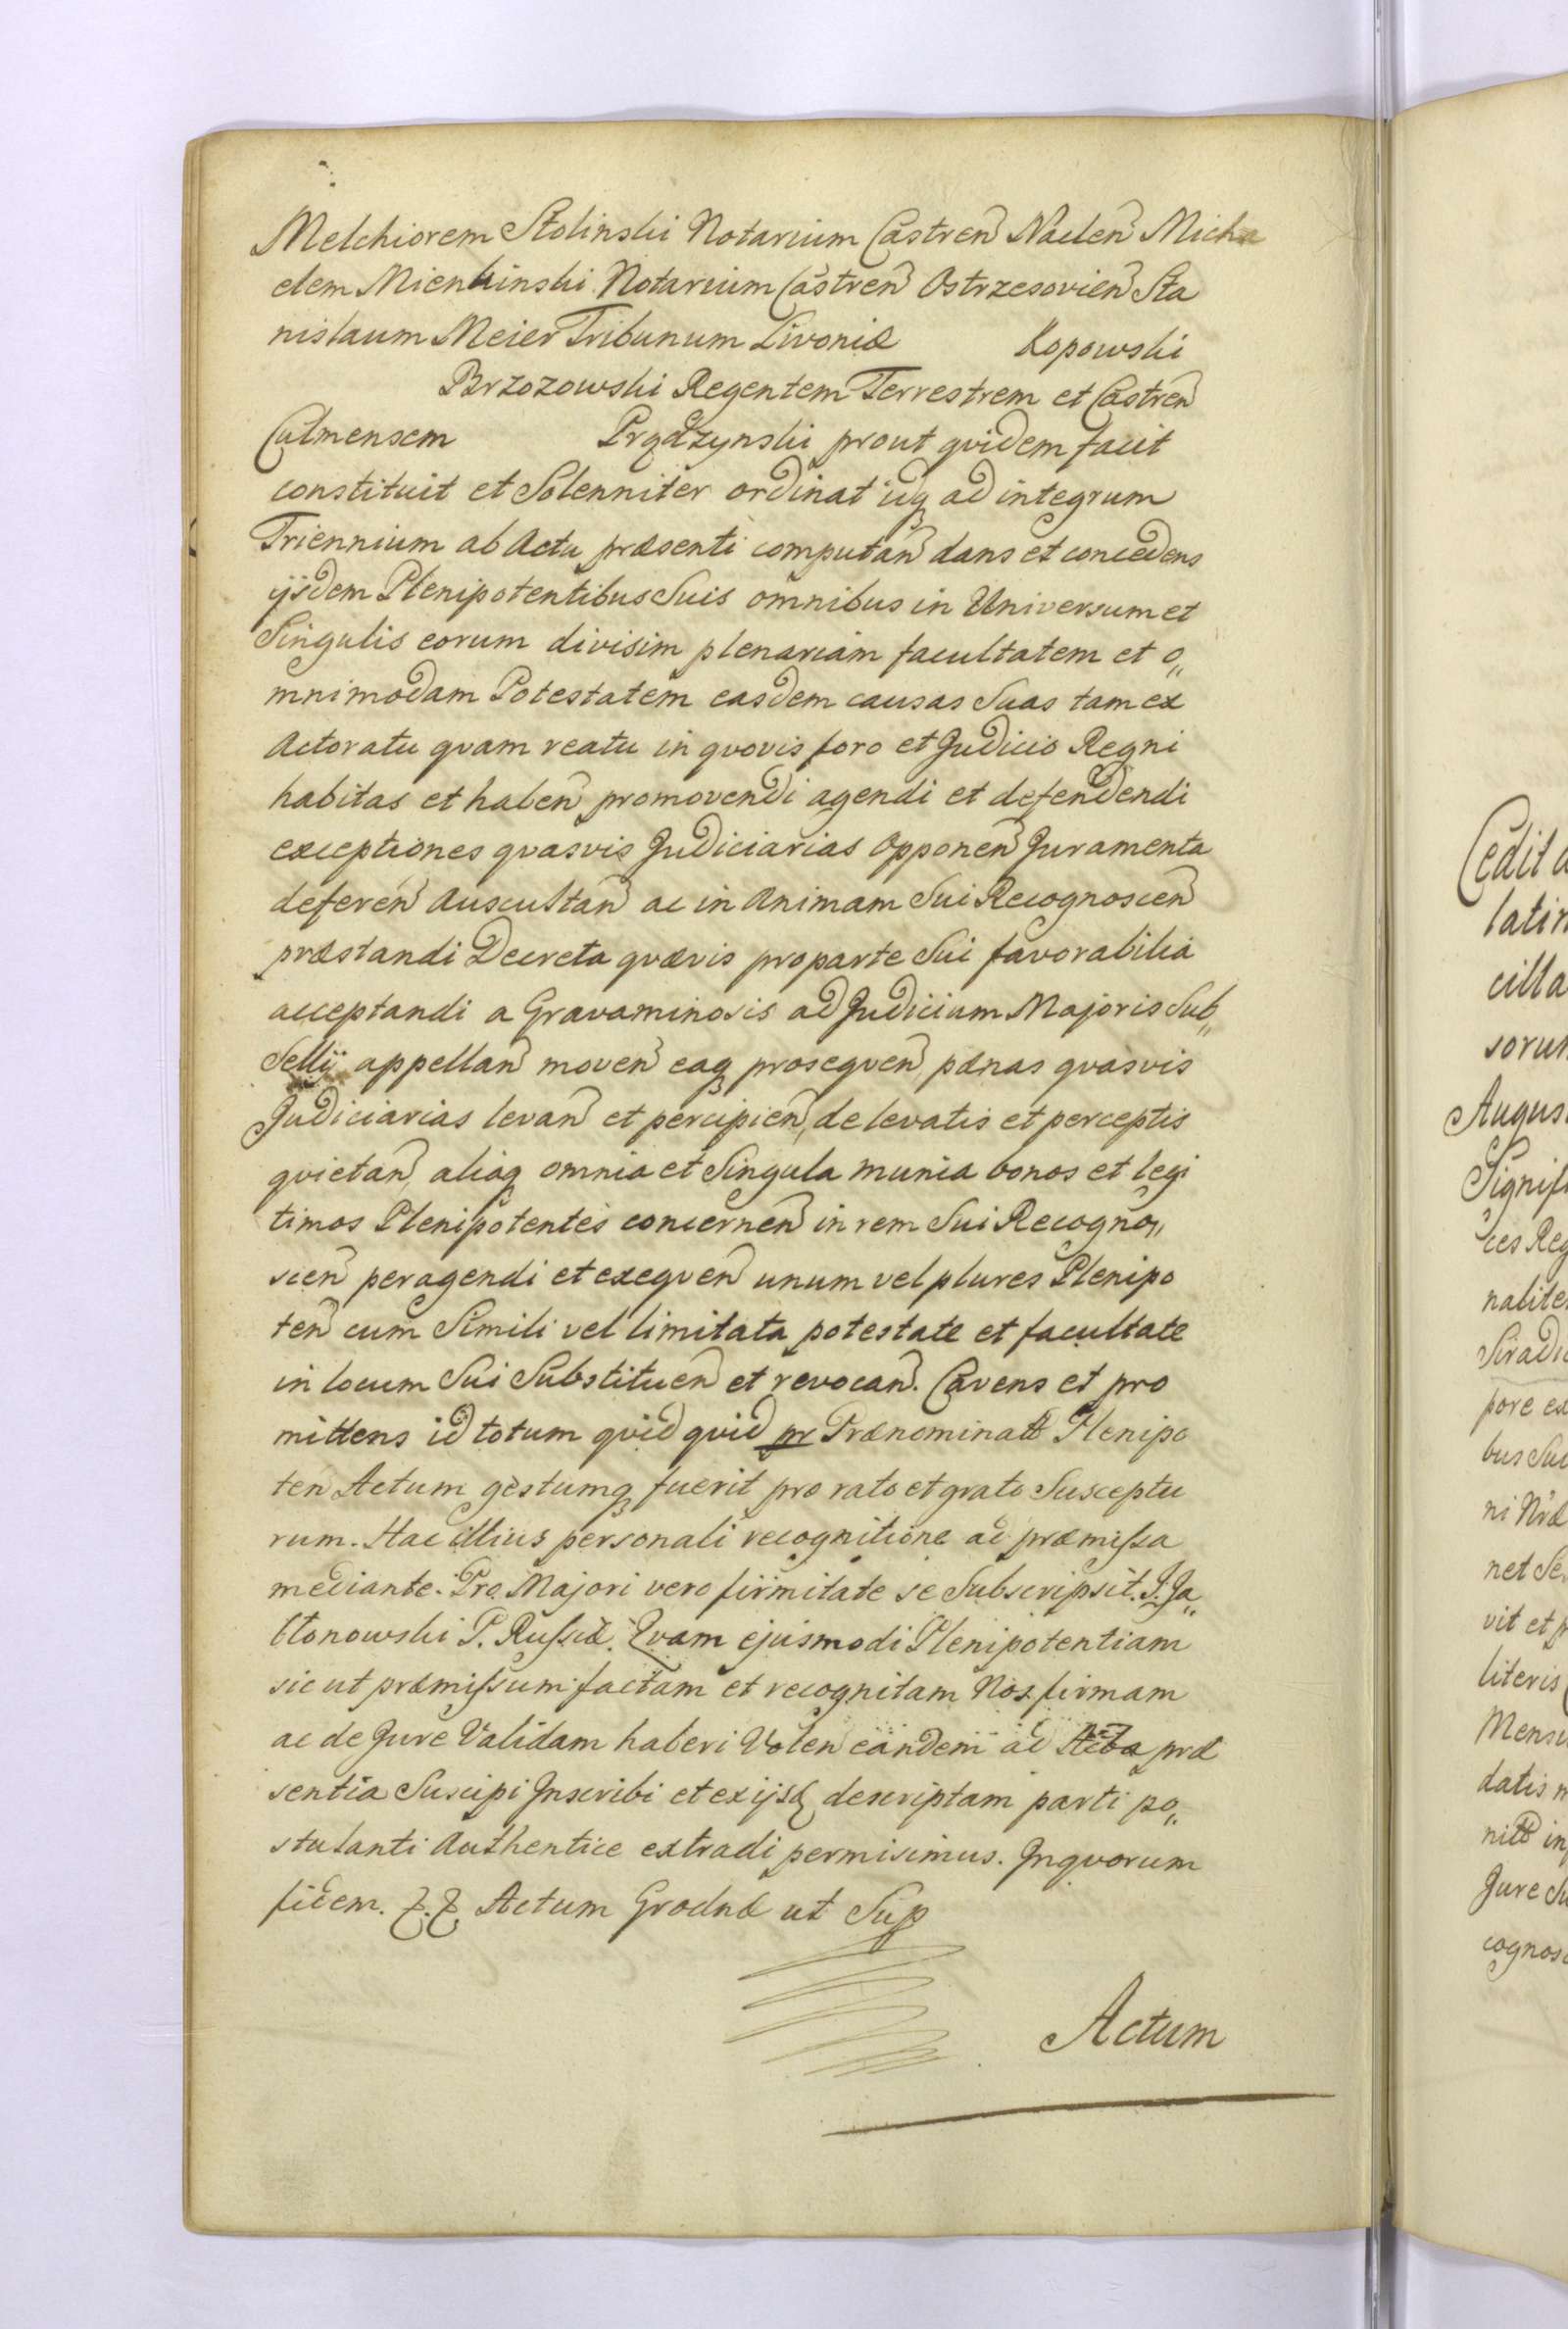 Melchiorem Stolinski Notarium Castren Naclen Micha
elem Mienkinski Notarium Castren Ostrzesovien Sta
nislaum Meier Tribunum Livoniæ Kopowski
Brzozowski Regentem Terrestrem et Castren
Culmensem Prądzynski prout qvidem facit
constituit et Solenniter ordinat idq ad integrum
Triennium ab Actu præsenti computan dans et concedens
ijsdem Plenipotentibus Suis omnibus in Universum et
Singulis eorum divisim plenariam facultatem et o„
mnimodam Potestatem easdem causas Suas tam ex
Actoratu qvam reatu in qvovis foro et Judicio Regni
habitas et haben promovendi agendi et defendendi
exceptiones qvasvis Judiciarias Opponen Juramenta
deferen Auscultan ac in Animam Sui Recognoscen
præstandi Decreta qvævis pro parte Sui favorabilia
acceptandi a Gravaminosis ad Judicium Majoris Sub„
Sellij appellan moven eaq proseqven pænas qvasvis
Judiciarias levan et percipien, de levatis et perceptis
qvietan, aliaq omnia et Singula munia bonos et legi
timos Plenipotentes concernen in rem Sui Recogno„
scen peragendi et exeqven unum vel plures Plenipo
ten cum Simili vel limitata potestate et facultate
in locum Sui Substituen et revocan. Cavens et pro
mittens id totum qvid qvid pr Prænominatt Plenipo
ten Actum gestumq fuerit pro rato et grato Susceptu
rum. Hac illius personali recognitione ad præmissa
mediante. Pro Majori vero firmitate se Subscripsit. J. Ja„
błonowski P. Russiæ. Qvam ejusmodi Plenipotentiam
sic ut præmissum factam et recognitam Nos firmam
ac de Jure Validam haberi Volen eandem ad Acta præ
sentia Suscipi Inscribi et ex ijsd descriptam parti po„
stulanti Authentice extradi permisimus. In qvorum
fidem. Actum Grodnæ ut Sup
Actum
Cedit
latin
cilla
sorum
August
Signif
ces Reg
nalite
Siradi
pore ex
bus Sui
ni Nræ
net Se
vit et p
literis
Mensi
datis
nitt in
Jure Su
cognos